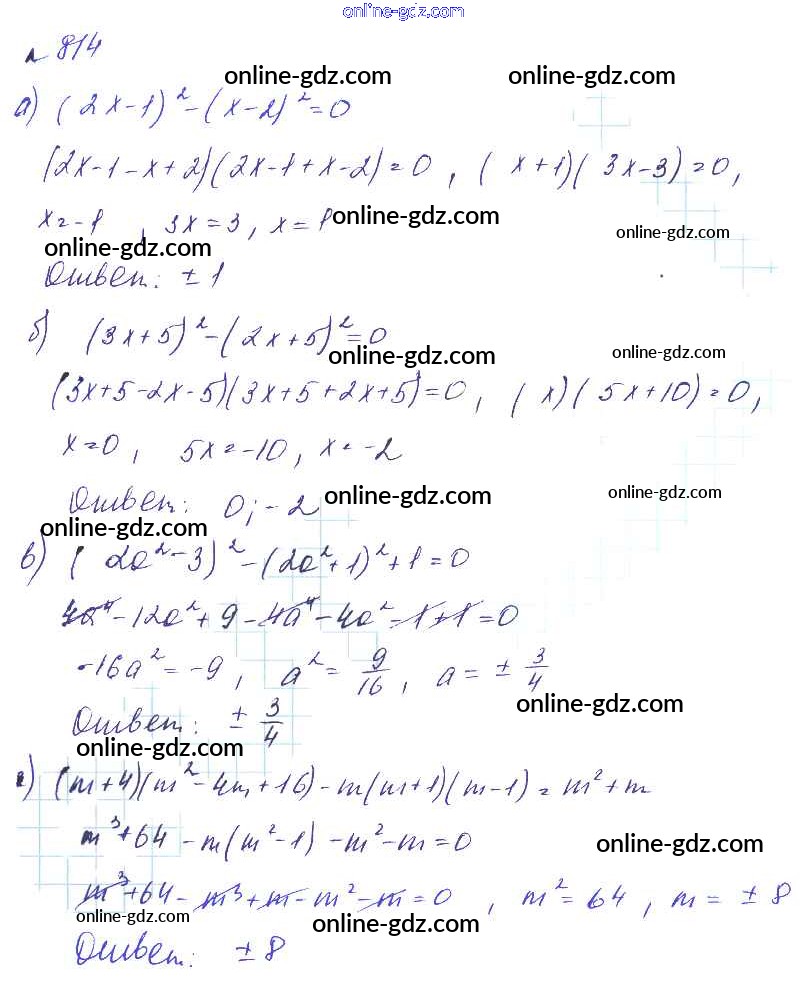 online-gdz.com
№ 814
online-gdz.com online-gdz.com
а) (2x-1)² - (x-2)² = 0
(2x-1-x+2)(2x-1+x-2) = 0, (x+1)(3x-3) = 0,
x = -1, 3x = 3, x = 1 online-gdz.com online-gdz.com
online-gdz.com
Ответ: ± 1
б) (3x+5)² - (2x+5)² = 0
online-gdz.com online-gdz.com
(3x+5-2x-5)(3x+5+2x+5) = 0, (x)(5x+10) = 0,
x = 0, 5x = -10, x = -2
Ответ: 0; -2 online-gdz.com online-gdz.com
online-gdz.com
в) (2a²-3)² - (2a²+1)² + 1 = 0
4a⁴ - 12a² + 9 - 4a⁴ - 4a² - 1 + 1 = 0
-16a² = -9, a² = 9/16, a = ± 3/4
online-gdz.com
Ответ: ± 3/4
online-gdz.com
г) (m+4)(m²-4m+16) - m(m+1)(m-1) = m² + m
m³+64 - m(m²-1) - m² - m = 0 online-gdz.com
m³+64 - m³ + m - m² - m = 0, m² = 64, m = ± 8
online-gdz.com online-gdz.com
Ответ: ± 8